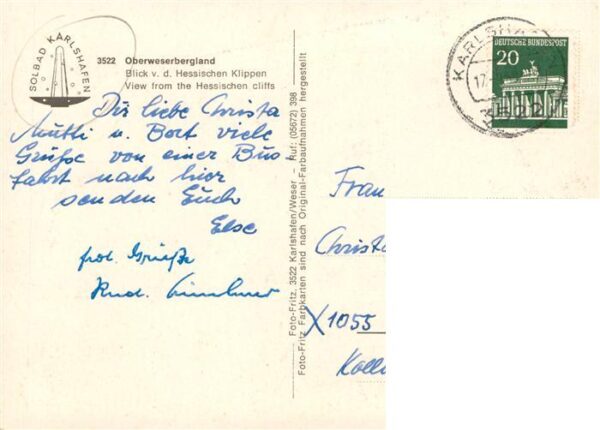 SOLBAD KARLSHAFEN
3522 Oberweserbergland
Blick v. d. Hessischen Klippen
View from the Hessischen cliffs
Dir liebe Christa
Mutti u. Bort viele
Grüße von einer Bus
fahrt nach hier
senden Euch
Else
frdl. Grüße
Rud.
Foto-Fritz, 3522 Karlshafen/Weser - Ruf: (05672) 398
Foto-Fritz Farbkarten sind nach Original-Farbaufnahmen hergestellt
KARLSHA
17.
DEUTSCHE BUNDESPOST
20
Frau
Christa
X1055